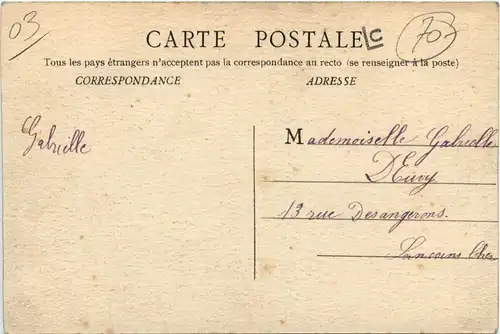 03
CARTE POSTALE LC
70
Tous les pays étrangers n'acceptent pas la correspondance au recto (se renseigner à la poste)
CORRESPONDANCE ADRESSE
Gabrielle
Mademoiselle Gabrielle
13 rue
Sancoins Cher